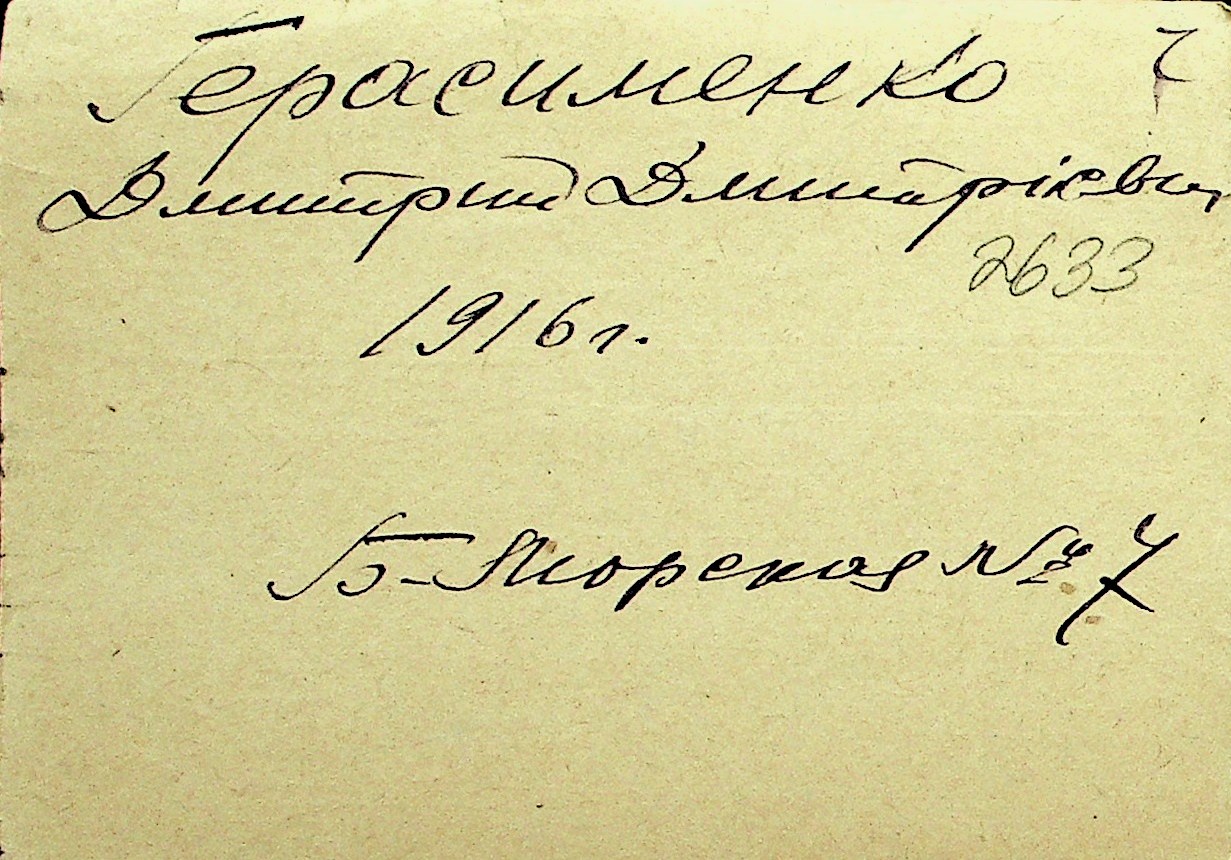 Герасименко 7
Дмитрий Дмитріевич
2633
1916 г.
Б-Морская № 7